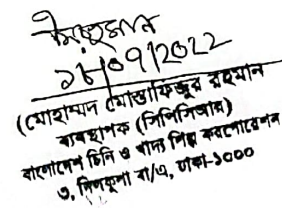 ১৮/০৭/2022
(মোহাম্মদ মোস্তাফিজুর রহমান
ব্যবস্থাপক (সিপিসিআর)
বাংলাদেশ চিনি ও খাদ্য শিল্প করপোরেশন
৩, দিলকুশা বা/এ, ঢাকা-১০০০